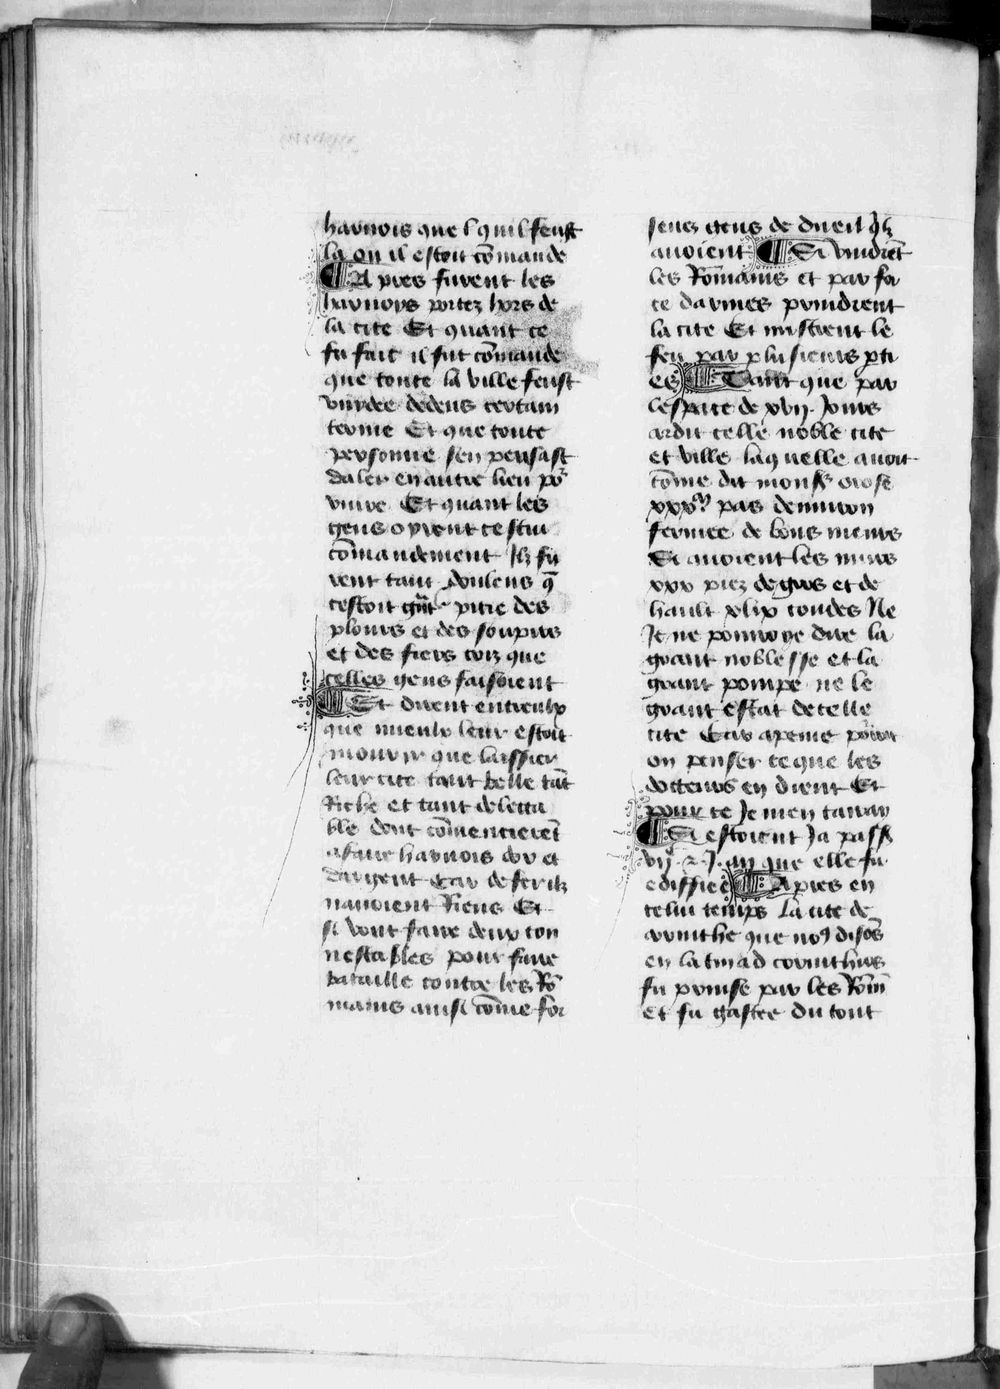 harnois que lquil feust
la ou il estoit cōmande
¶ Apres furent les
harnoys portez hors de
la cite Et quant ce
fu fait il fut cōmande
que toute la ville feust
vuidee dedens certain
terme Et que toute
personne sen pensast
daler en autre lieu po᷑
viure Et quant les
gens oyrent cestui
cōmandement Ilz fu
rent tant doulens q̄
cestoit gn̄t pitie des
plours et des soupirs
et des fiers criz que
celles gens faisoient
¶ Et dirent entreulx
que mieulx leur estoit
mourir que laissier
leur cite tant belle tāt
Riche et tant delecta
ble dont cōmencierēt
a faire harnois dor et
dargent Car de fer ilz
nauoient Riens Et
si vont faire deux con
nestables pour faire
bataille contre les Rō
mains ainsi cōme for
senez gens de dueil qlz
auoient ¶ Si vindrēt
les Rōmains et par for
ce darmes prindrent
la cite Et mistrent le
feu par plusieurs pti
es ¶ Tant que par
lespace de xvij. Jours
ardit celle noble cite
et ville laquelle auoit
cōme dit mons᷑ orose
xxx.m pas denuiron
fermee de bons murs
Si auoient les murs
xxx piez de gros et de
hault xlix coudes Ne
Je ne pourroye dire la
grant noblesse et la
grant pompe ne le
grant estat de celle
cite Car a peine po᷑roit
on penser ce que les
docteurs en dient Et
pour ce Je men tairay
¶ Si estoient Ja pass᷑
vijc. z J. an que elle fu
ediffiee ¶ Apres en
celui temps la cite de
corinthe que no9 disōs
en latin ad corinthios
fu prinse par les Rōm̄
et fu gastee du tout